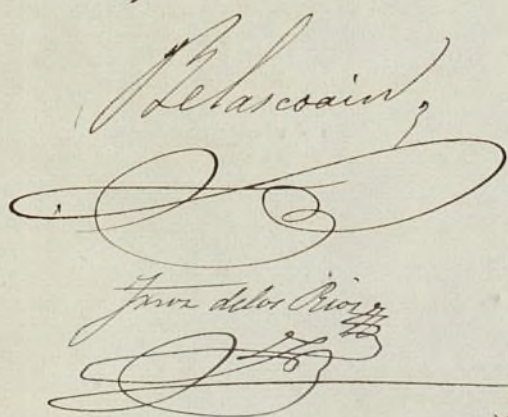 Belascoain
delos Rios